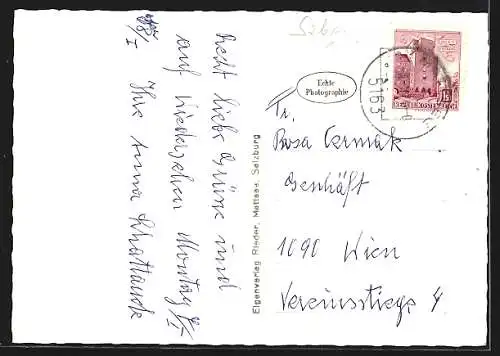 Recht liebe Grüsse und
auf Wiedersehen Montag 8/I
Ihre
8/I
Echte
Photographie
Eigenverlag Rieder, Mattsee, Salzburg
5163
Fr.
Rosa Cermak
Geschäft
1090 Wien
Vereinsstiege 4